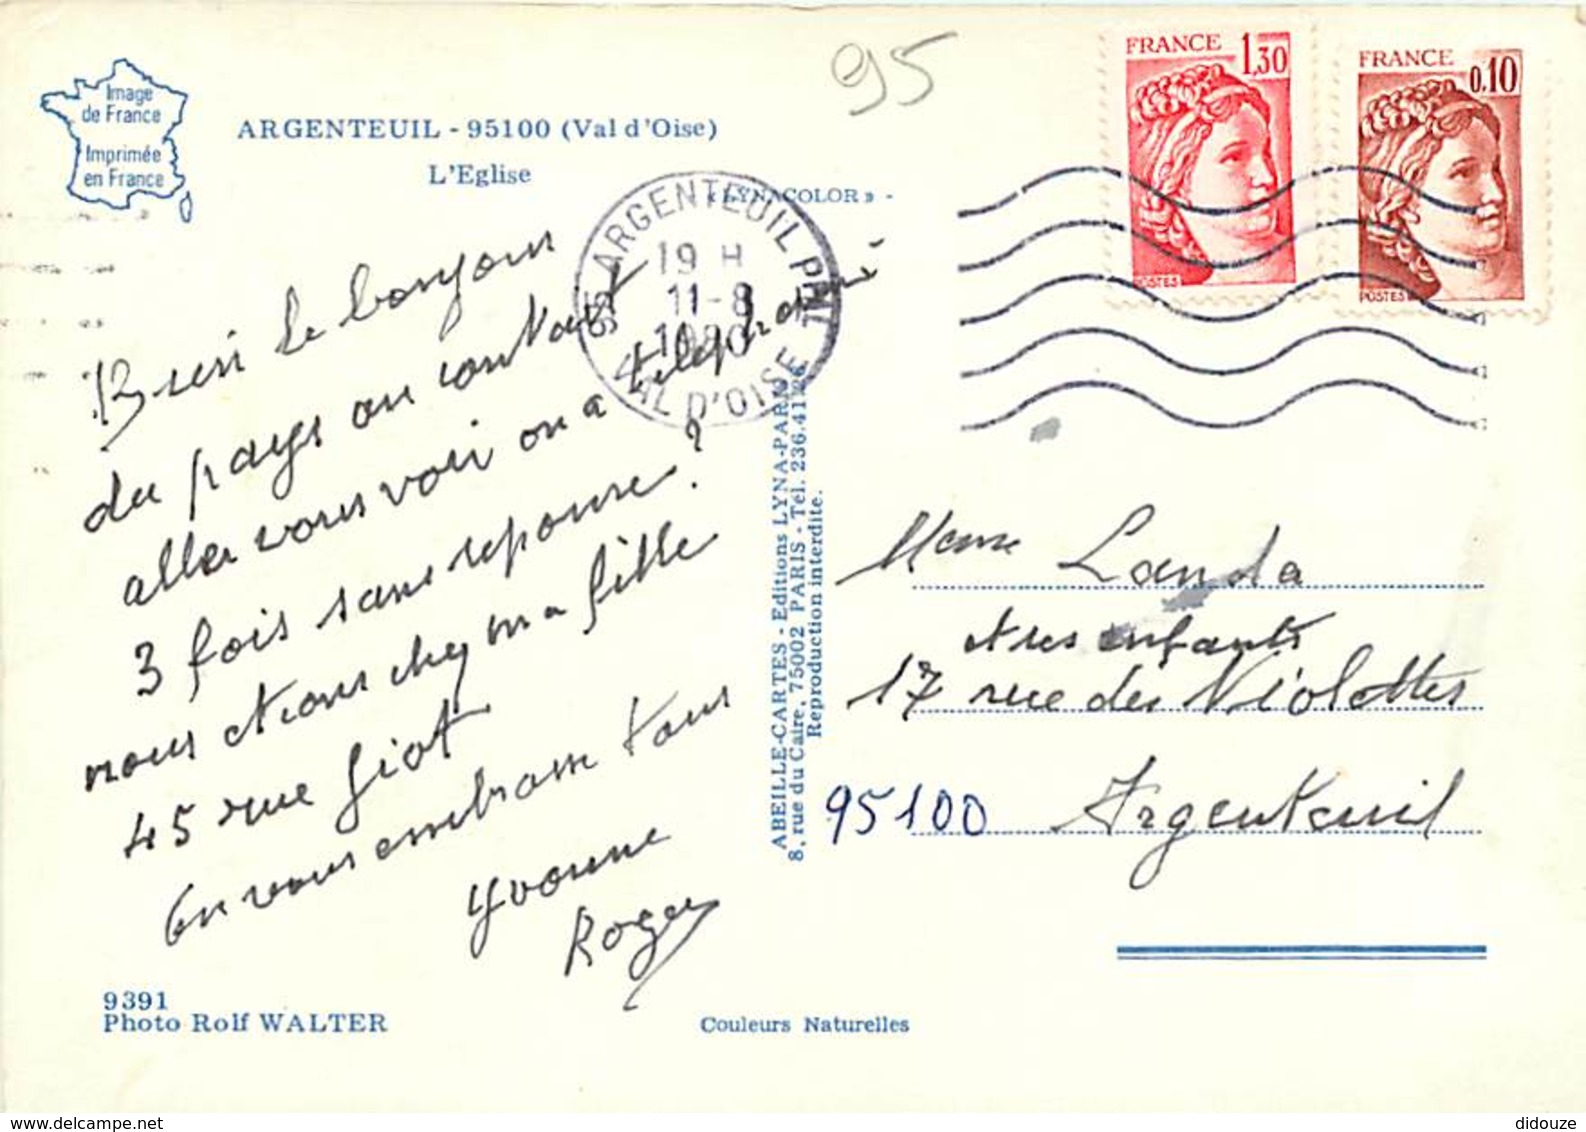 95
FRANCE 1,30
POSTES
FRANCE 0,10
POSTES
Image
de France
Imprimée
en France
ARGENTEUIL - 95100 (Val d'Oise)
L'Eglise
« LYNACOLOR » -
95 ARGENTEUIL PPAL
19 H
11-8
1980
VAL D'OISE
Bien le bonjour
du pays on comptait
aller vous voir on a téléphoné
3 fois sans reponse?
nous etions chez ma fille
45 rue Giot
En vous embrasse tous
Yvonne
Roger
ABEILLE-CARTES - Editions LYNA-PARIS
8, rue du Caire, 75002 PARIS - Tél. 236.41.26
Reproduction interdite.
Mme Landa
et ses enfants
17 rue des Violettes
95100 Argenteuil
9391
Photo Rolf WALTER
Couleurs Naturelles
delcampe.net
didouze